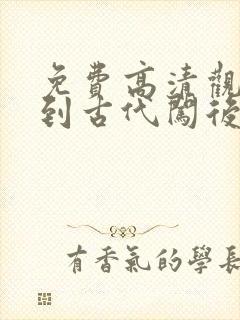 免費高清觀
到古代闖後
有香氣的學長